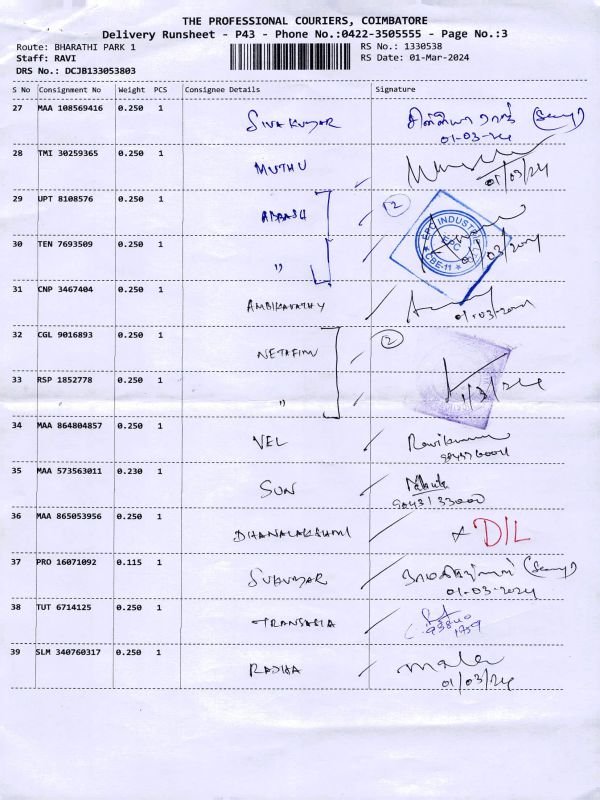 THE PROFESSIONAL COURIERS, COIMBATORE
Delivery Runsheet - P43 - Phone No.:0422-3505555 - Page No.:3
Route: BHARATHI PARK 1 RS No.: 1330538
Staff: RAVI RS Date: 01-Mar-2024
DRS No.: DCJB133053803
S No Consignment No Weight PCS Consignee Details Signature
27 MAA 108569416 0.250 1 SIVAKUMAR
01-03-24
28 TMI 30259365 0.250 1 MUTHU
01/03/24
29 UPT 8108576 0.250 1 2
EPC INDUSTRIE
EPC
CBE-11
30 TEN 7693509 0.250 1 "
31 CNP 3467404 0.250 1 AMBIKAPATHY
01-03-2024
32 CGL 9016893 0.250 1 NETAFIM 2
33 RSP 1852778 0.250 1 "
1/3/24
34 MAA 864804857 0.250 1 VEL
35 MAA 573563011 0.230 1 SUN
36 MAA 865053956 0.250 1 DHANALAKSHMI DIL
37 PRO 16071092 0.115 1 SUKUMAR
01-03-2024
38 TUT 6714125 0.250 1
39 SLM 340760317 0.250 1 RADHA mala
01/03/24